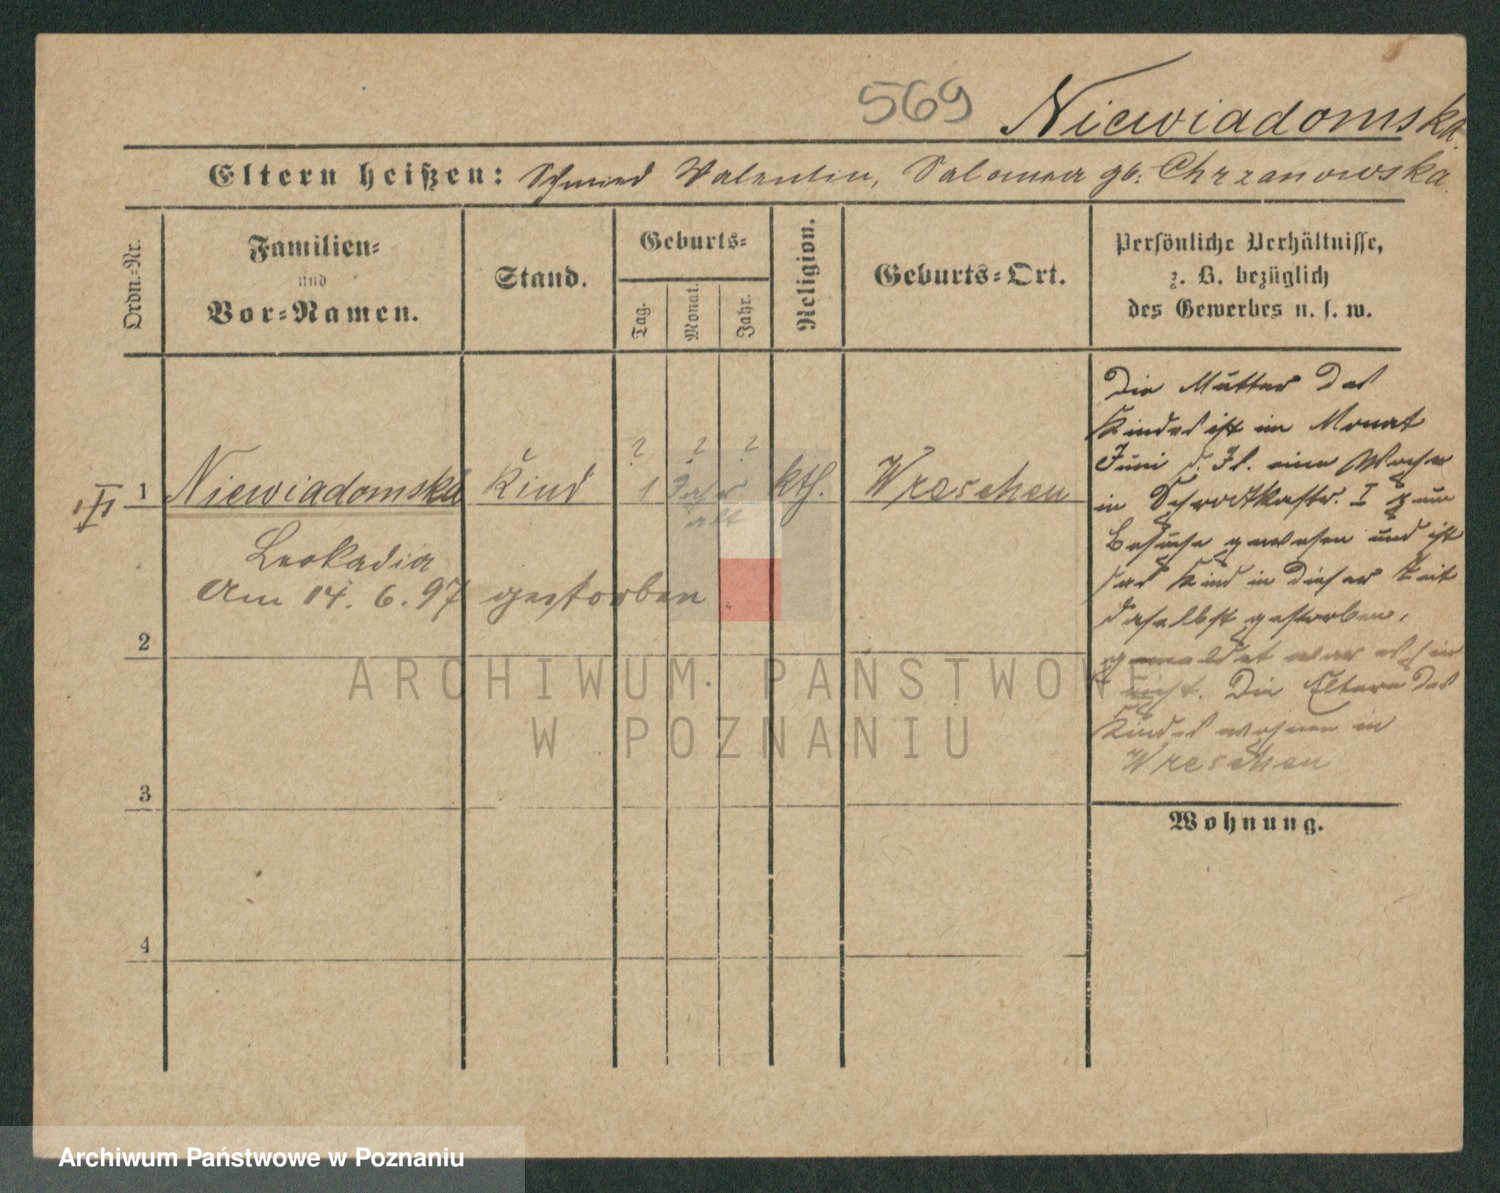 569 Niewiadomska.
Eltern heißen: Schmied Valentin, Salomea gb: Chrzanowska.
Ordn.-Nr.
Familien-
und
Vor-Namen.
Stand.
Geburts-
Tag.
Monat.
Jahr.
Religion.
Geburts-Ort.
Persönliche Verhältnisse,
z. B. bezüglich
des Gewerbes u. s. w.
? ? ?
III 1 Niewiadomska Kind 1 Jahr kth. Wreschen
alt
Leokadia
Am 14. 6. 97 gestorben
2
3
4
Die Mutter des
Kindes ist im Monat
Juni d. Js. eine Woche
in Schrodkastr. I zum
Besuche gewesen und ist
das Kind in dieser Zeit
daselbst gestorben,
gemeldet war es hier
nicht. Die Eltern des
Kindes wohnen in
Wreschen
Wohnung.
ARCHIWUM PAŃSTWOWE
W POZNANIU
Archiwum Państwowe w Poznaniu